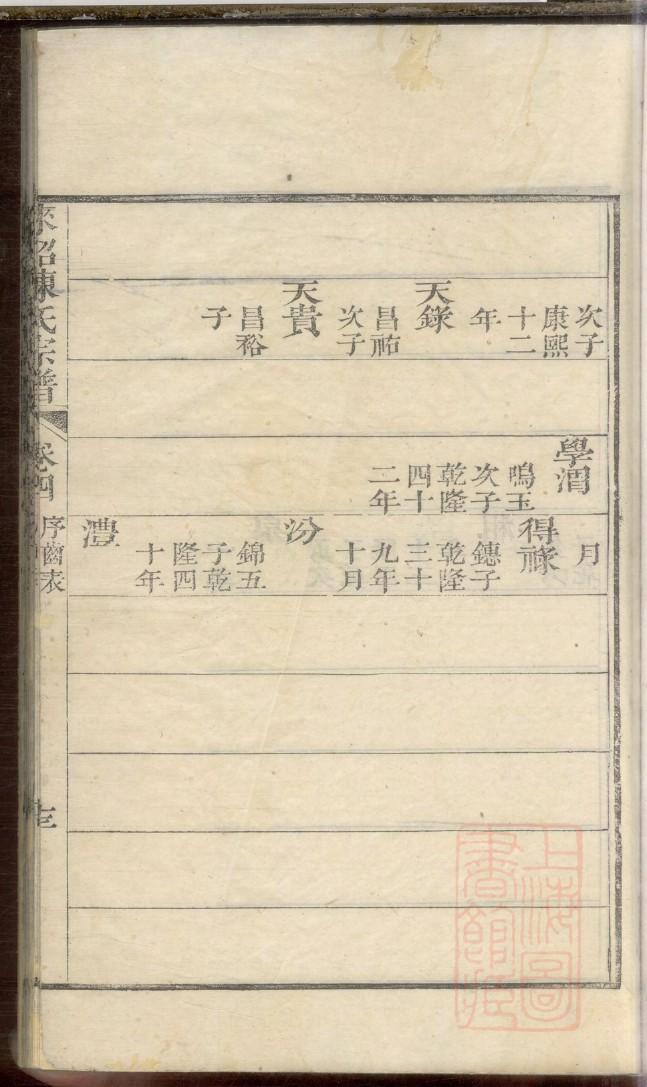 次子
康熙
十二
年
天錄
昌祐
次子
天貴
昌裕
子
學渭
鳴玉
次子
乾隆
四十
二年
月
得祿
子
乾隆
三十
九年
十月
汾
錦五
子乾
隆四
十年
澧
陳氏宗譜
卷四
序齒表
上海圖
書館藏